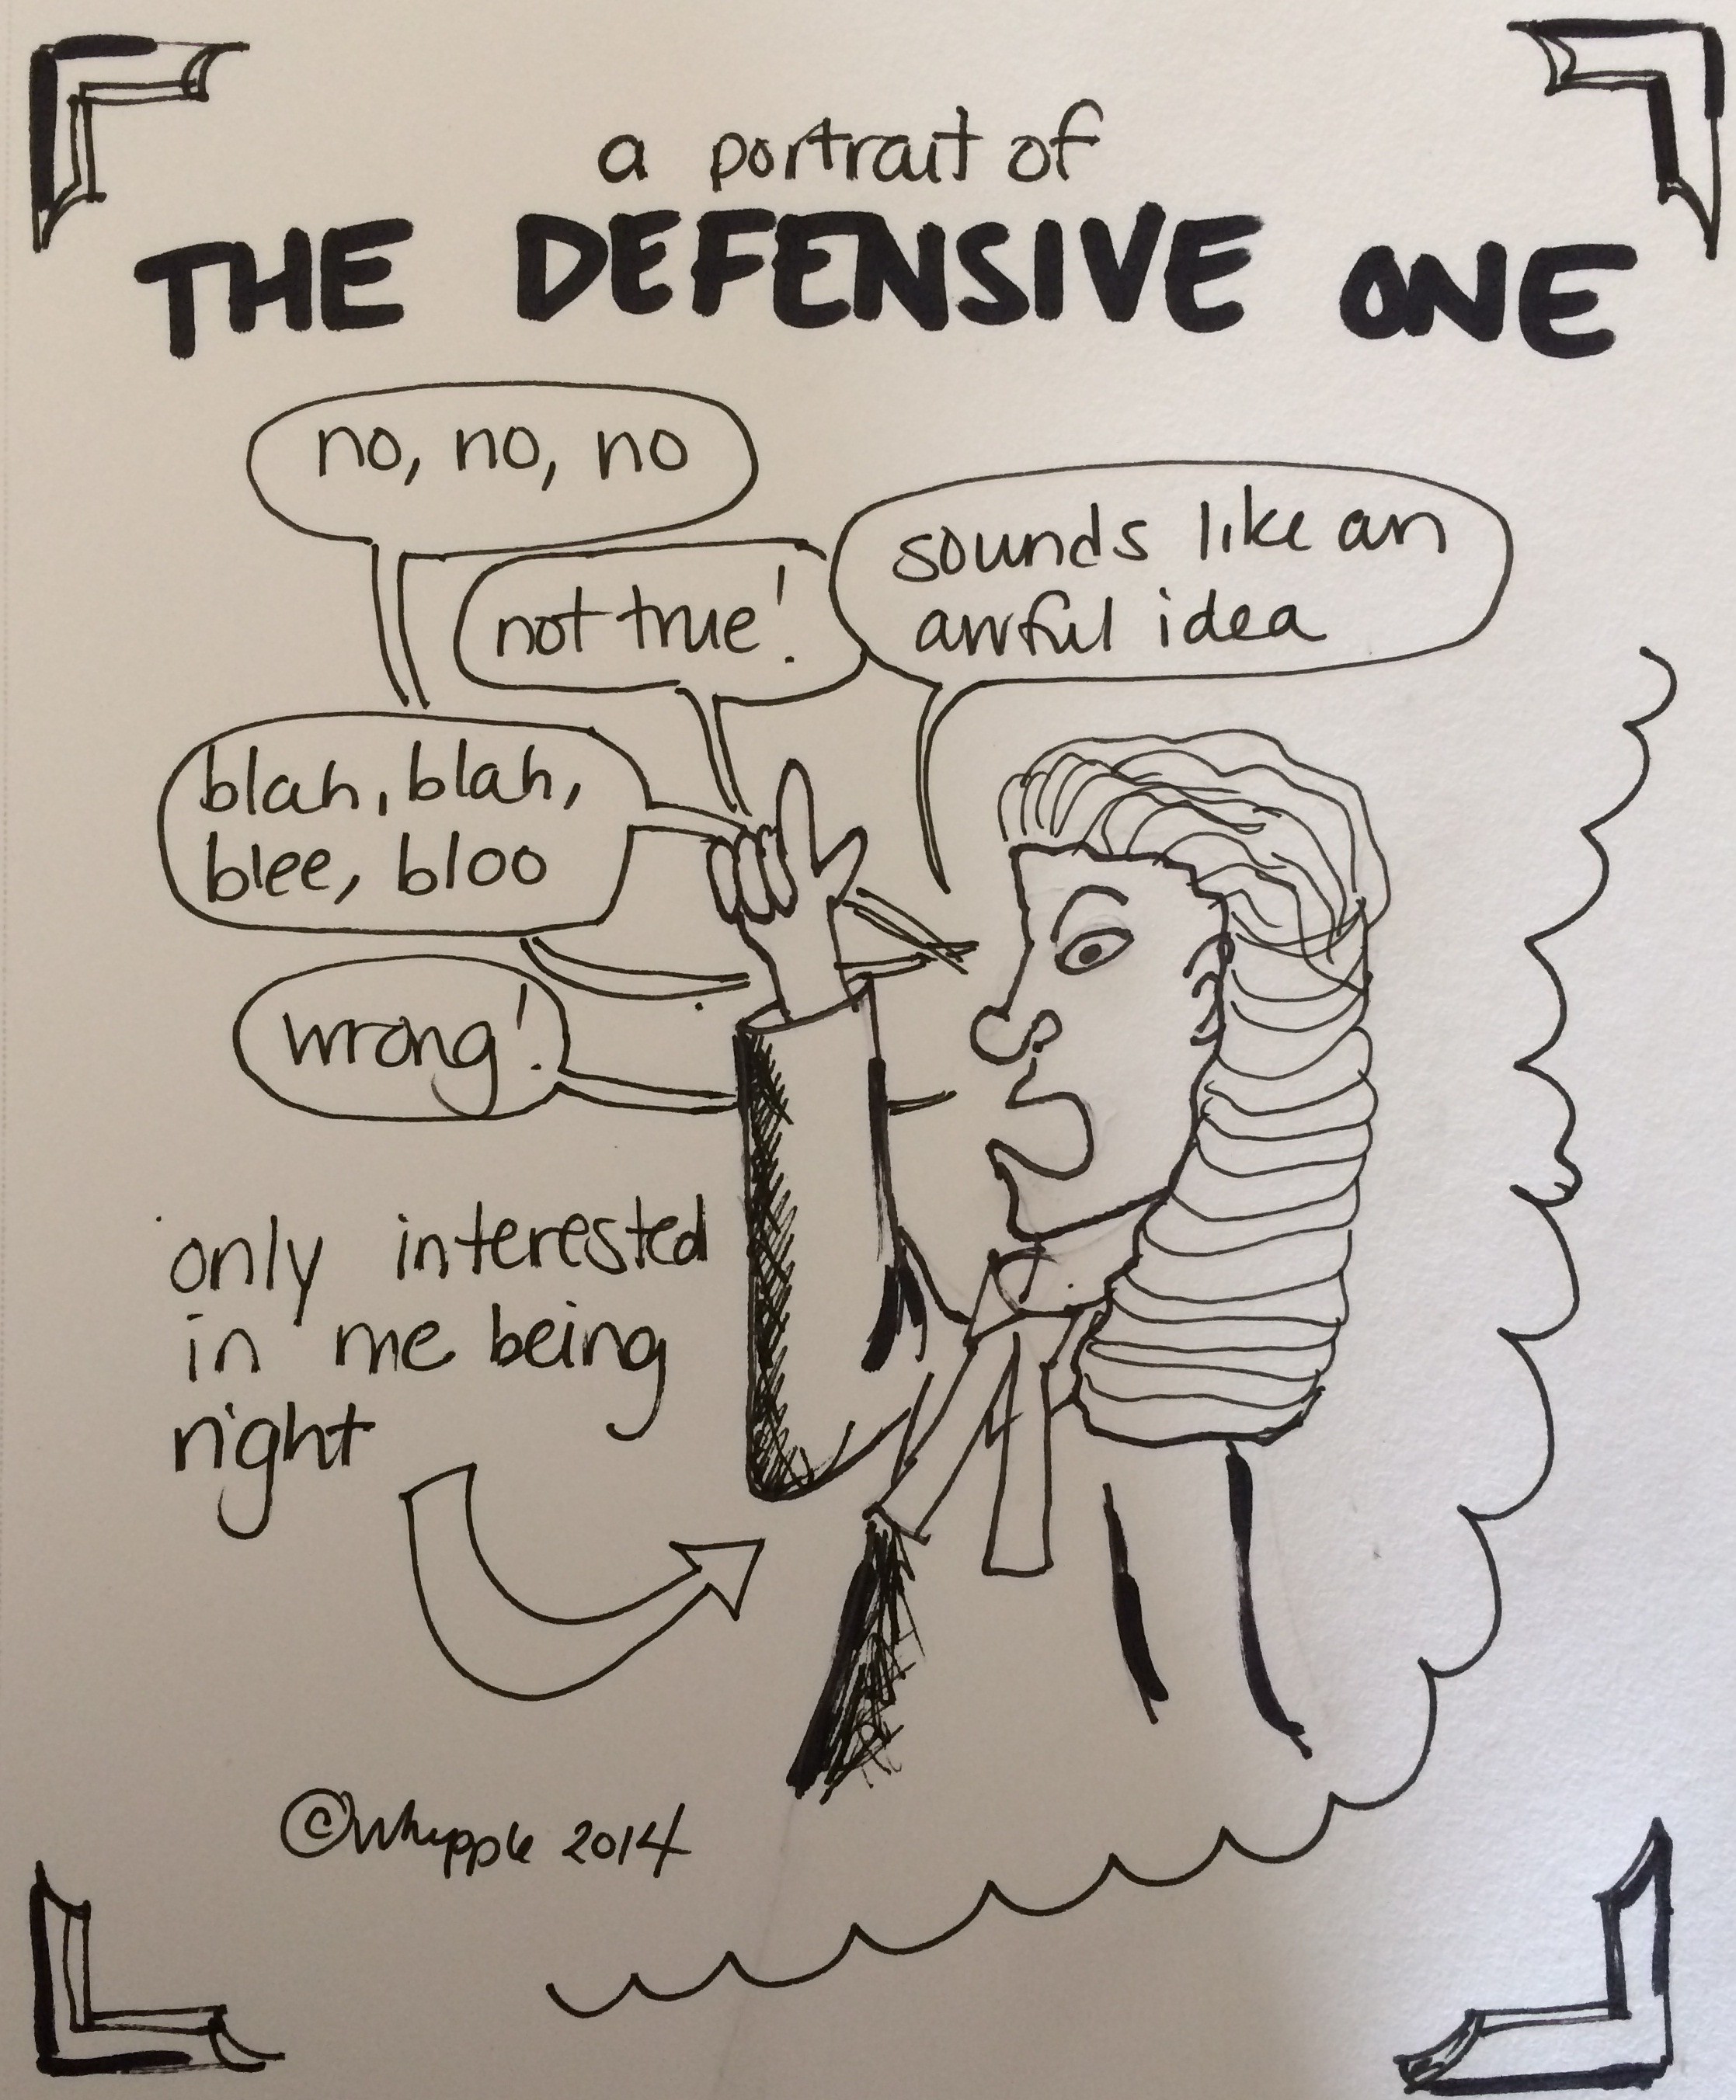 a portrait of
THE DEFENSIVE ONE
no, no, no
not true!
sounds like an
awful idea
blah, blah,
blee, bloo
wrong!
only interested
in me being
right
©Whipple 2014